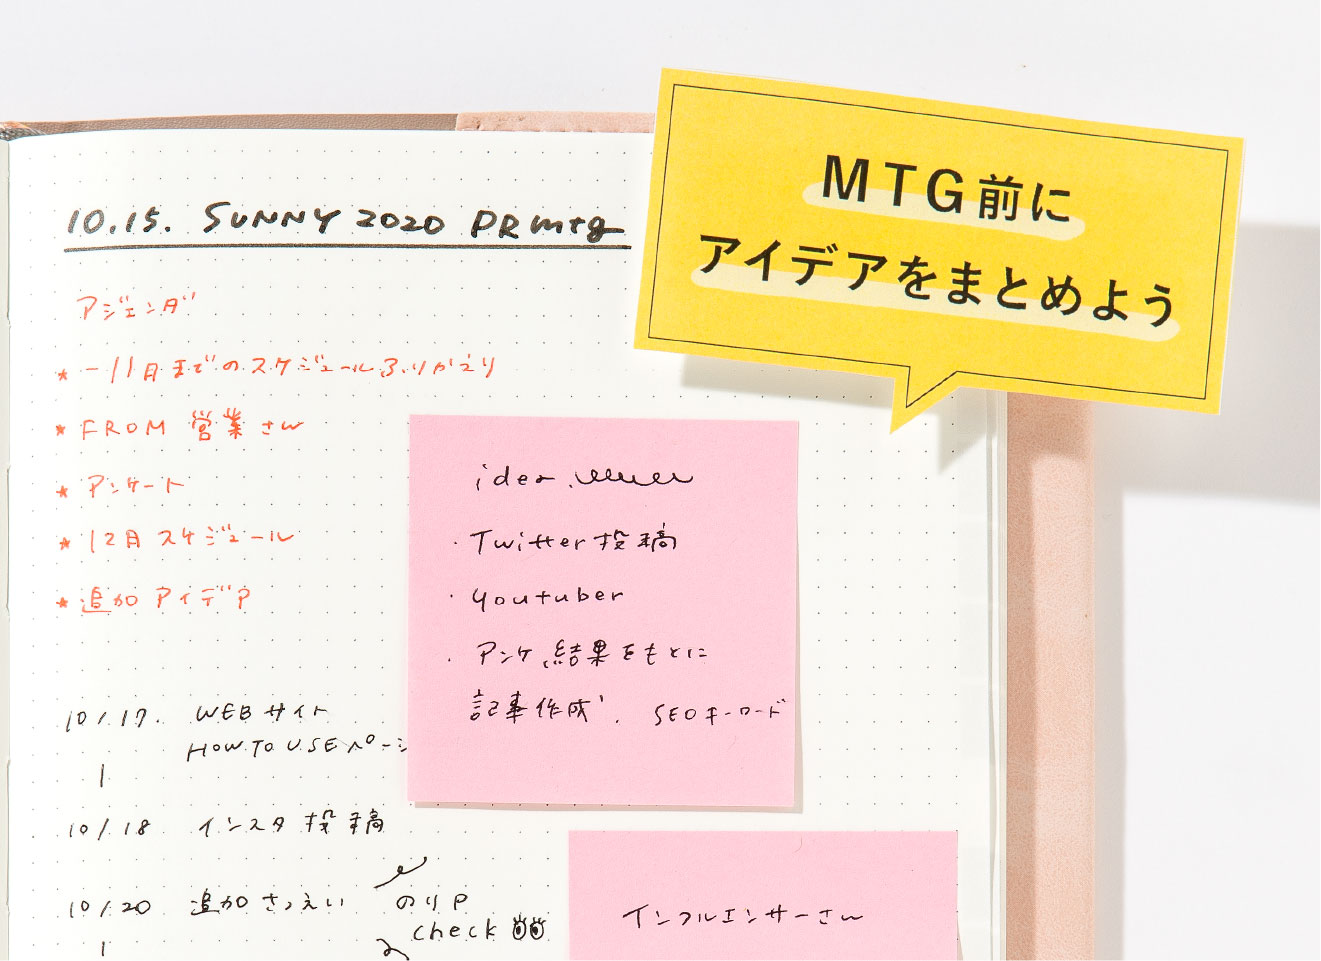 MTG前に
アイデアをまとめよう
10.15. SUNNY 2020 PRmtg
アジェンダ
* -11月までのスケジュールふりかえり
* FROM 営業さん
* アンケート
* 12月 スケジュール
* 追加 アイデア
idea
・Twitter投稿
・youtuber
・アンケ結果をもとに
記事作成. SEOキーワード
10/17. WEBサイト
HOW TO USEページ
10/18 インスタ投稿
10/20 追加さつえい のりP
check
インフルエンサーさん